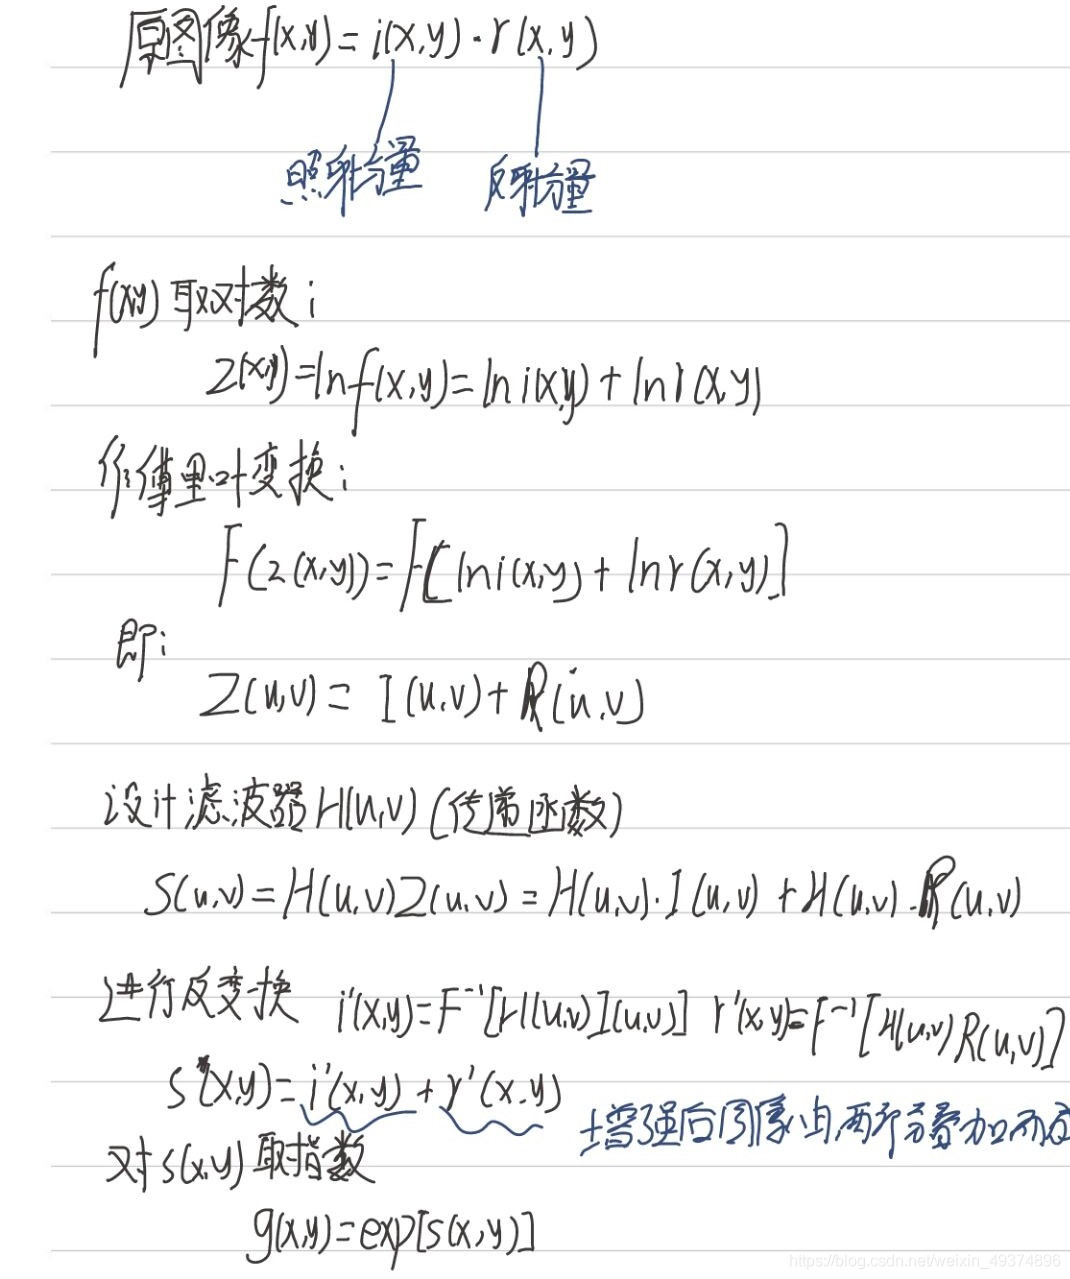 原图像f(x,y)=i(x,y)·r(x,y)
照射分量 反射分量
f(x,y)取对数:
z(x,y)=lnf(x,y)=lni(x,y)+lnr(x,y)
作傅里叶变换:
F(z(x,y))=F[lni(x,y)+lnr(x,y)]
即:
Z(u,v)= I(u,v)+R(u,v)
设计滤波器H(u,v)(传递函数)
S(u,v)=H(u,v)Z(u,v)=H(u,v)·I(u,v)+H(u,v)·R(u,v)
进行反变换 i'(x,y)=F⁻¹[H(u,v)I(u,v)] r'(x,y)=F⁻¹[H(u,v)R(u,v)]
s(x,y)=i'(x,y)+r'(x,y)
增强后图像由两个分叠加而
对s(x,y)取指数
g(x,y)=exp[s(x,y)]
https://blog.csdn.net/weixin_49374896